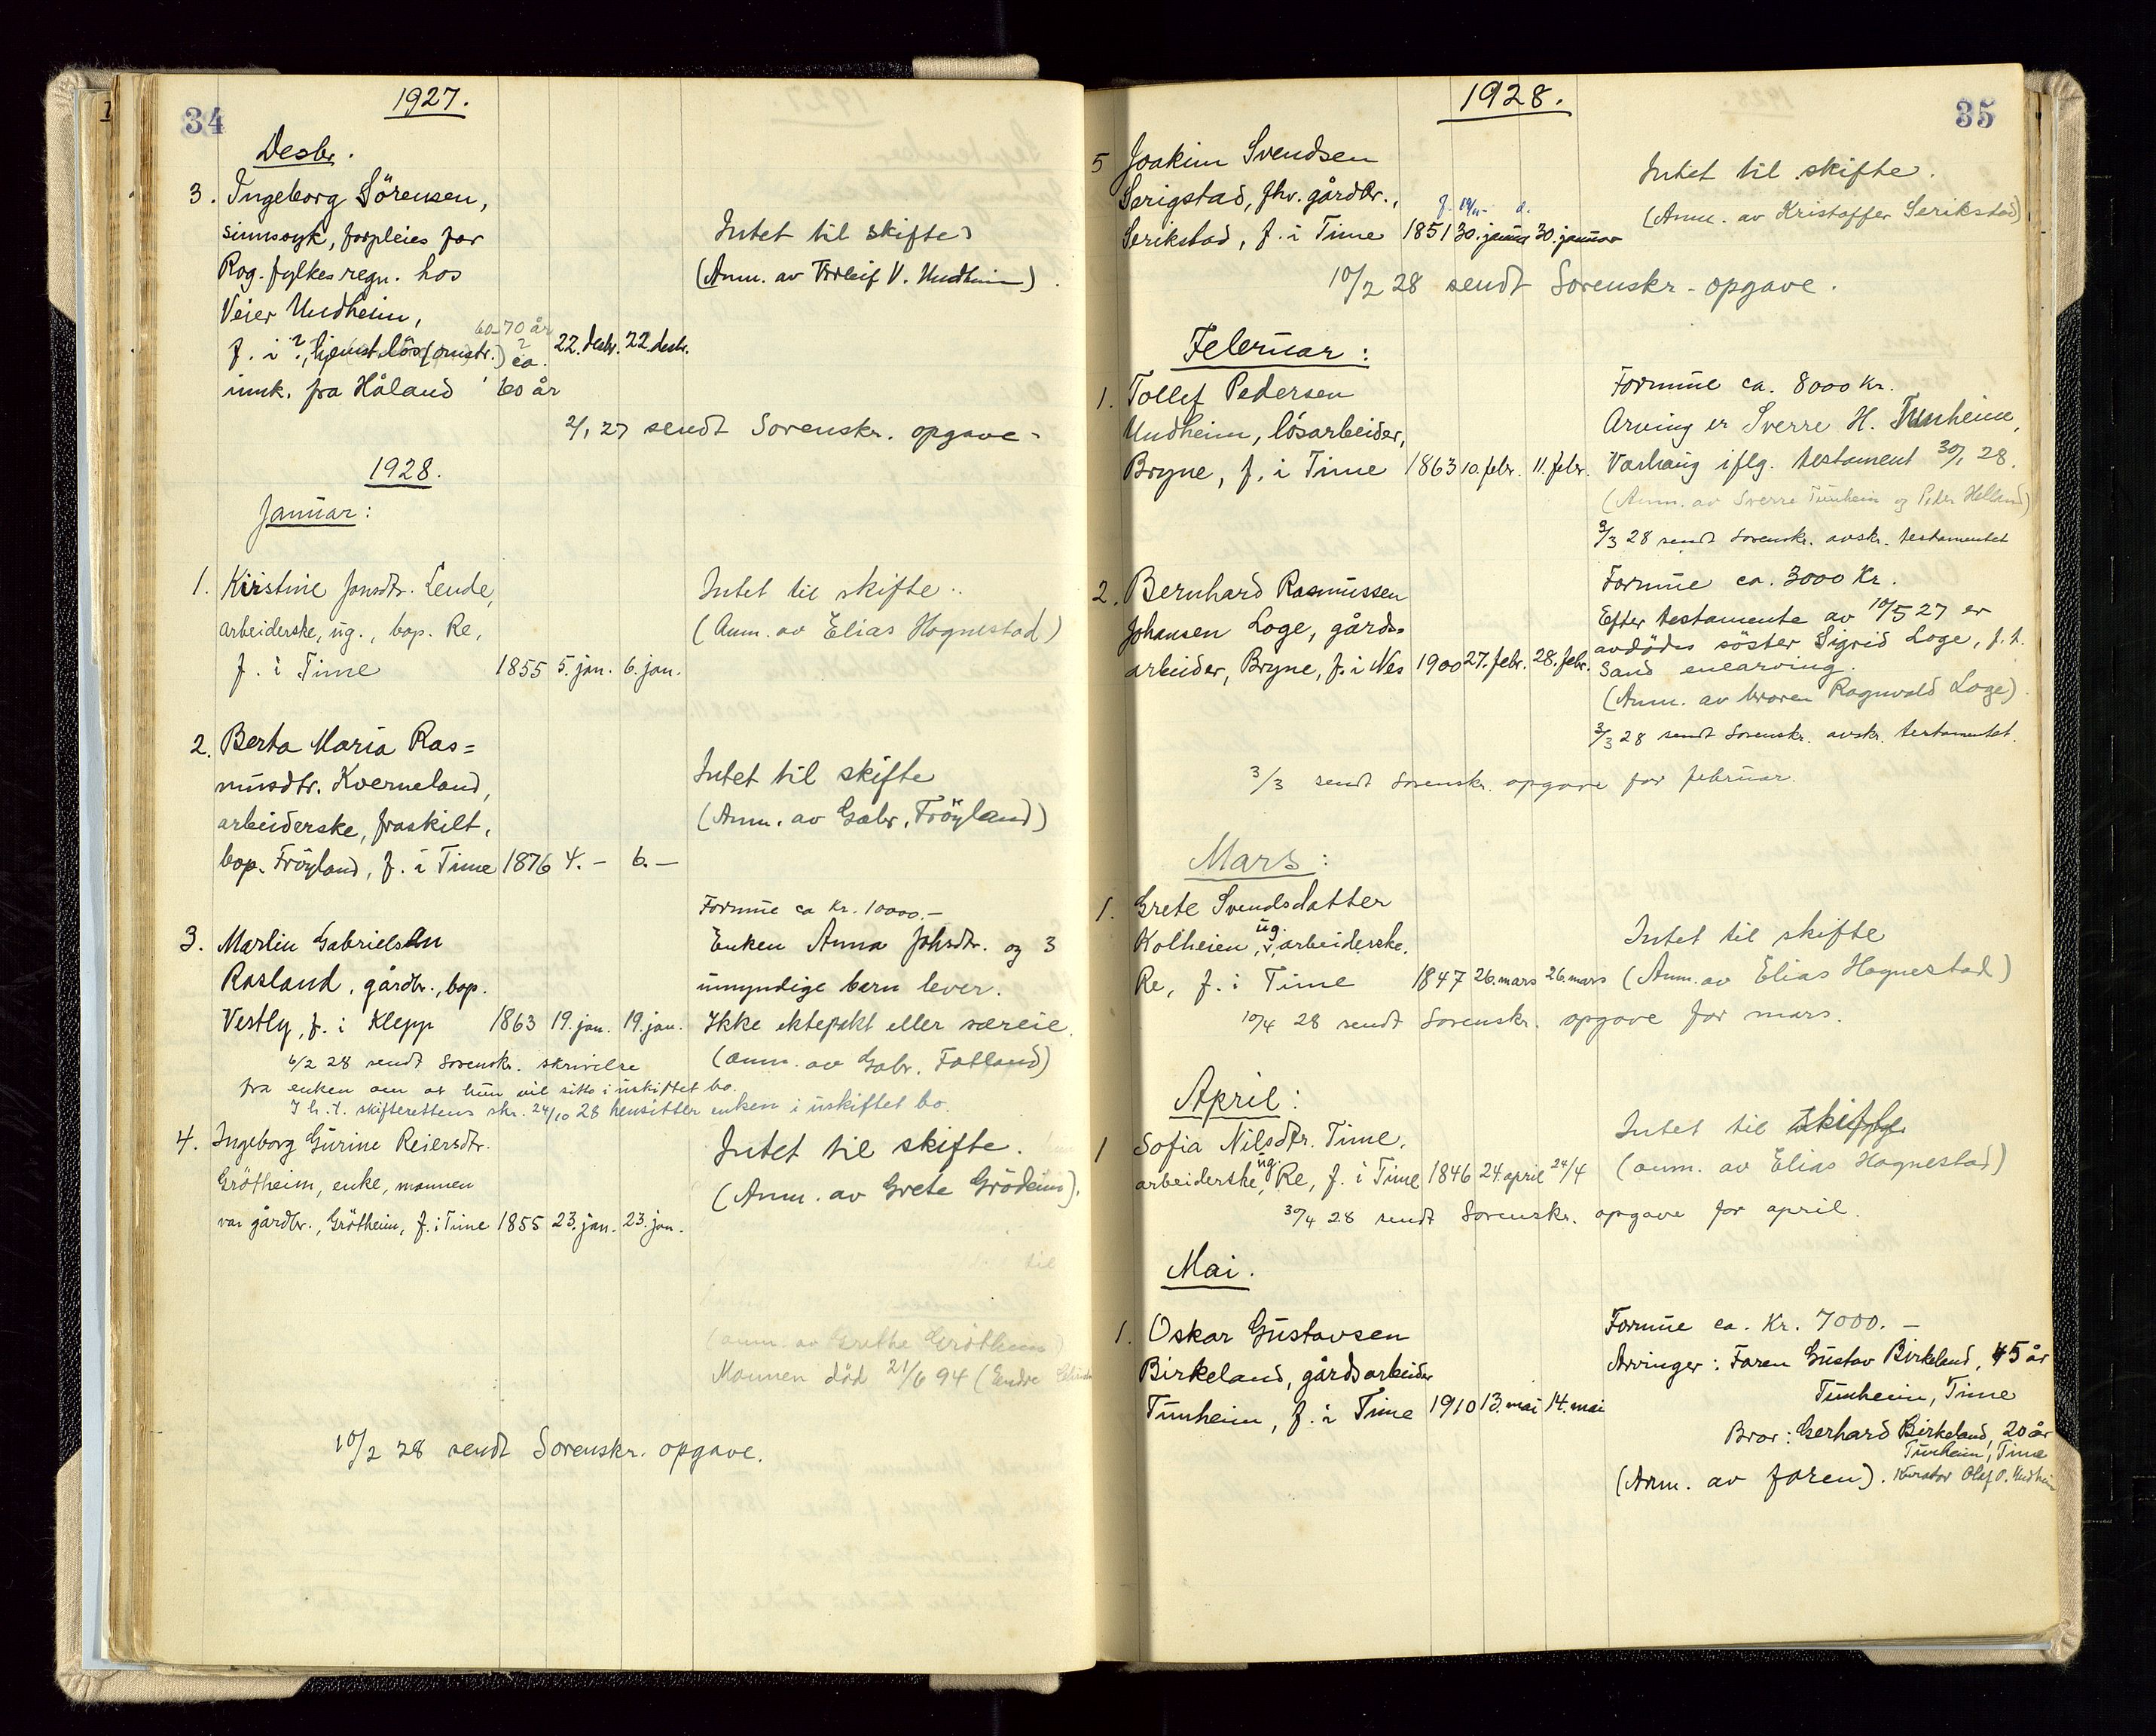 34
1927.
Desbr.
3. Ingeborg Sörensen,
sinnssyk, forpleies for
Rog. fylkes regn. hos
Veier Undheim,
60-70 år
f. i ?, hjemstlös (omstr.) ca. 22. desbr. 22. desbr.
innk. fra Håland 60 år
Intet til skifte
(Anm. av Torleif V. Undheim).
2/1 27 sendt Sorenskr. opgave.
1928.
Januar:
1. Kristine Jonsdtr. Lende,
arbeiderske, ug., bop. Re,
f. i Time 1855 5. jan. 6. jan.
Intet til skifte.
(Anm. av Elias Hognestad)
2. Berta Maria Ras=
musdtr. Kverneland,
arbeiderske, fraskilt,
bop. Fröyland, f. i Time 1876 4. – 6. –
Intet til skifte
(Anm. av Gabr. Fröyland)
3. Marlin Gabrielsen
Rosland, gårdbr., bop.
Vestly, f. i Klepp 1863 19. jan. 19. jan.
Formue ca Kr. 10000.–
Enken Anna Johsdtr. og 3
umyndige barn lever.
Ikke ektepakt eller særeie.
(anm. av Gabr. Fotland)
6/2 28 sendt Sorenskr. skrivelse
fra enken om at hun vil sitte i uskiftet bo.
I h. t. skifterettens skr. 24/10 28 hensitter enken i uskiftet bo.
4. Ingeborg Gurine Reiersdtr.
Grötheim, enke, mannen
var gårdbr., Grötheim, f. i Time 1855 23. jan. 23. jan.
Intet til skifte.
(Anm. av Grete Grödeim).
til
(anm. av Grethe Grötheim)
Mannen död 21/6 94 (Endre
10/2 28 sendt Sorenskr. opgave.
35
1928.
5 Joakim Svendsen
Serigstad, fhv. gårdbr.,
f. d.
Serikstad, f. i Time 1851 30. januar 30. januar
Intet til skifte.
(Anm. av Kristoffer Serikstad)
10/2 28 sendt Sorenskr. opgave.
Februar:
1. Tollef Pedersen
Undheim, lösarbeider,
Bryne, f. i Time 1863 10. febr. 11. febr.
Formue ca. 8000 Kr.
Arving er Sverre H. Tunheim,
Varhaug iflg. testament 30/1 28.
(Anm. av Sverre Tunheim og Peder Helland)
3/3 28 sendt Sorenskr. avskr. testamentet
2. Bernhard Rasmussen
Johansen Loge, gårds=
arbeider, Bryne, f. i Nes 1900 27. febr. 28. febr.
Formue ca. 3000 Kr.
Efter testamente av 10/5 27 er
avdödes söster Sigrid Loge, f. t.
Sand enearving.
(Anm. av broren Ragnvald Loge)
3/3 28 sendt Sorenskr. avskr. testamentet.
3/3 sendt Sorenskr. opgave for februar.
Mars:
1. Grete Svendsdatter
ug.
Kolheien, arbeiderske.
Re, f. i Time 1847 26. mars 26. mars
Intet til skifte
(Anm. av Elias Hognestad)
10/4 28 sendt Sorenskr. opgave for mars.
April:
1 Sofia Nilsdtr. Time.
ug.
arbeiderske, Re, f. i Time 1846 24. april 24/4
Intet til skifte
(anm. av Elias Hognestad)
30/4 28 sendt Sorenskr. opgave for april.
Mai.
1. Oskar Gustavsen
Birkeland, gårdsarbeider
Tunheim, f. i Time 1910 13. mai 14. mai
Formue ca. Kr. 7000. –
Arvinger: Faren Gustav Birkeland, 45 år
Tunheim, Time
Bror: Gerhard Birkeland, 20 år
Tunheim, Time
(Anm. av faren). Kurator Olaf O. Undheim